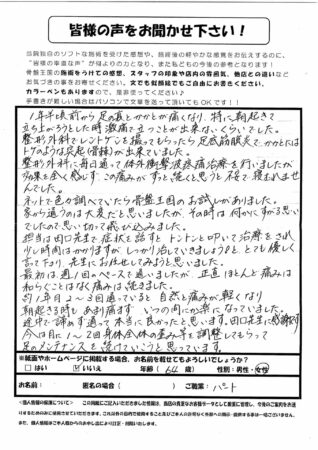 皆様の声をお聞かせ下さい!
当院独自のソフトな施術を受けた感想や、施術後の軽やかな感覚をお伝えするのに、
"皆様の率直な声"が何よりのお力となり、また私どもの今後の参考となります!
骨盤王国の施術をうけての感想、スタッフの印象や店内の雰囲気、他店との違いなど
お気づきの事をお書きください。文でも図解でもご自由にお書きください、
カラーペンもありますので、是非使ってください♪
手書きが難しい場合はパソコンで文章を送って頂いてもOKです!!
1年半位前から足の裏とかかとが痛くなり、特に朝起きて
立ち上がろうとした時激痛で立つことが出来ないくらいでした。
整形外科でレントゲンを撮ってもらったら足底筋膜炎で、かかとには
トゲのような突起(骨棘)が出来ていました。
整形外科に毎日通って体外衝撃波疼痛治療を行いましたが
効果を全く感じず この痛みがずっと続くと思うと不安で寝れませ
んでした。
ネットで色々調べていたら骨盤王国のお試しがありました。
家から通うのは大変だと思いましたが、その時は何かにすがる思い
でしたので思い切って飛び込みました。
担当は田口先生で症状を話すと トントンと叩いて治療をされ
少し時間はかかりますが しっかり治していきましょうネと とても優しく
言って下り 先生にお任せしてみようと思いました。
最初は週1回のペースで通いましたが、正直ほとんど痛みは
和らぐことはなく痛みは続きました。
約1年月2〜3回通っていると 自然と痛みが軽くなり
朝起きる時も あまり痛まず いつの間にか楽になっていました。
途中で諦めず通って本当に良かったと思います。田口先生に感謝です
今は月に1〜2回身体全体の歪み等を調整してもらって
足のメンテナンスも続けていこうと思っています。
※紙面やホームページに掲載する場合、お名前を載せてもよろしいでしょうか?
□はい □いいえ 年齢( 64 歳) 性別:男性・女性
お名前: 匿名の場合( ) ご職業: パート